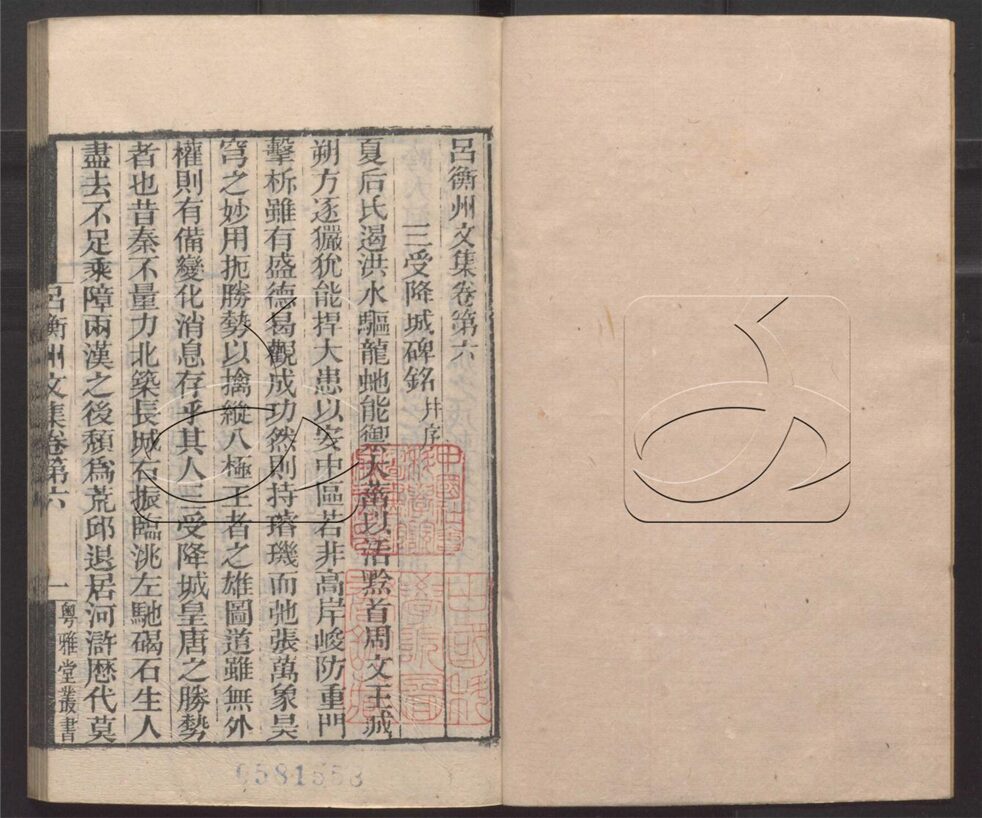 呂衡州文集卷第六
三受降城碑銘 并序
夏后氏遏洪水驅龍虵能禦大菑以活黔首周文王城
朔方逐玁狁能捍大患以安中區若非高岸峻防重門
擊柝雖有盛德曷觀成功然則持璿璣而弛張萬象昊
穹之妙用扼勝勢以擒縱八極王者之雄圖道雖無外
權則有備變化消息存乎其人三受降城皇唐之勝勢
者也昔秦不量力北築長城右振臨洮左馳碣石生人
盡去不足乘障兩漢之後頹爲荒邱退居河滸歷代莫
呂衡州文集卷第六 一 粵雅堂叢書
0581558